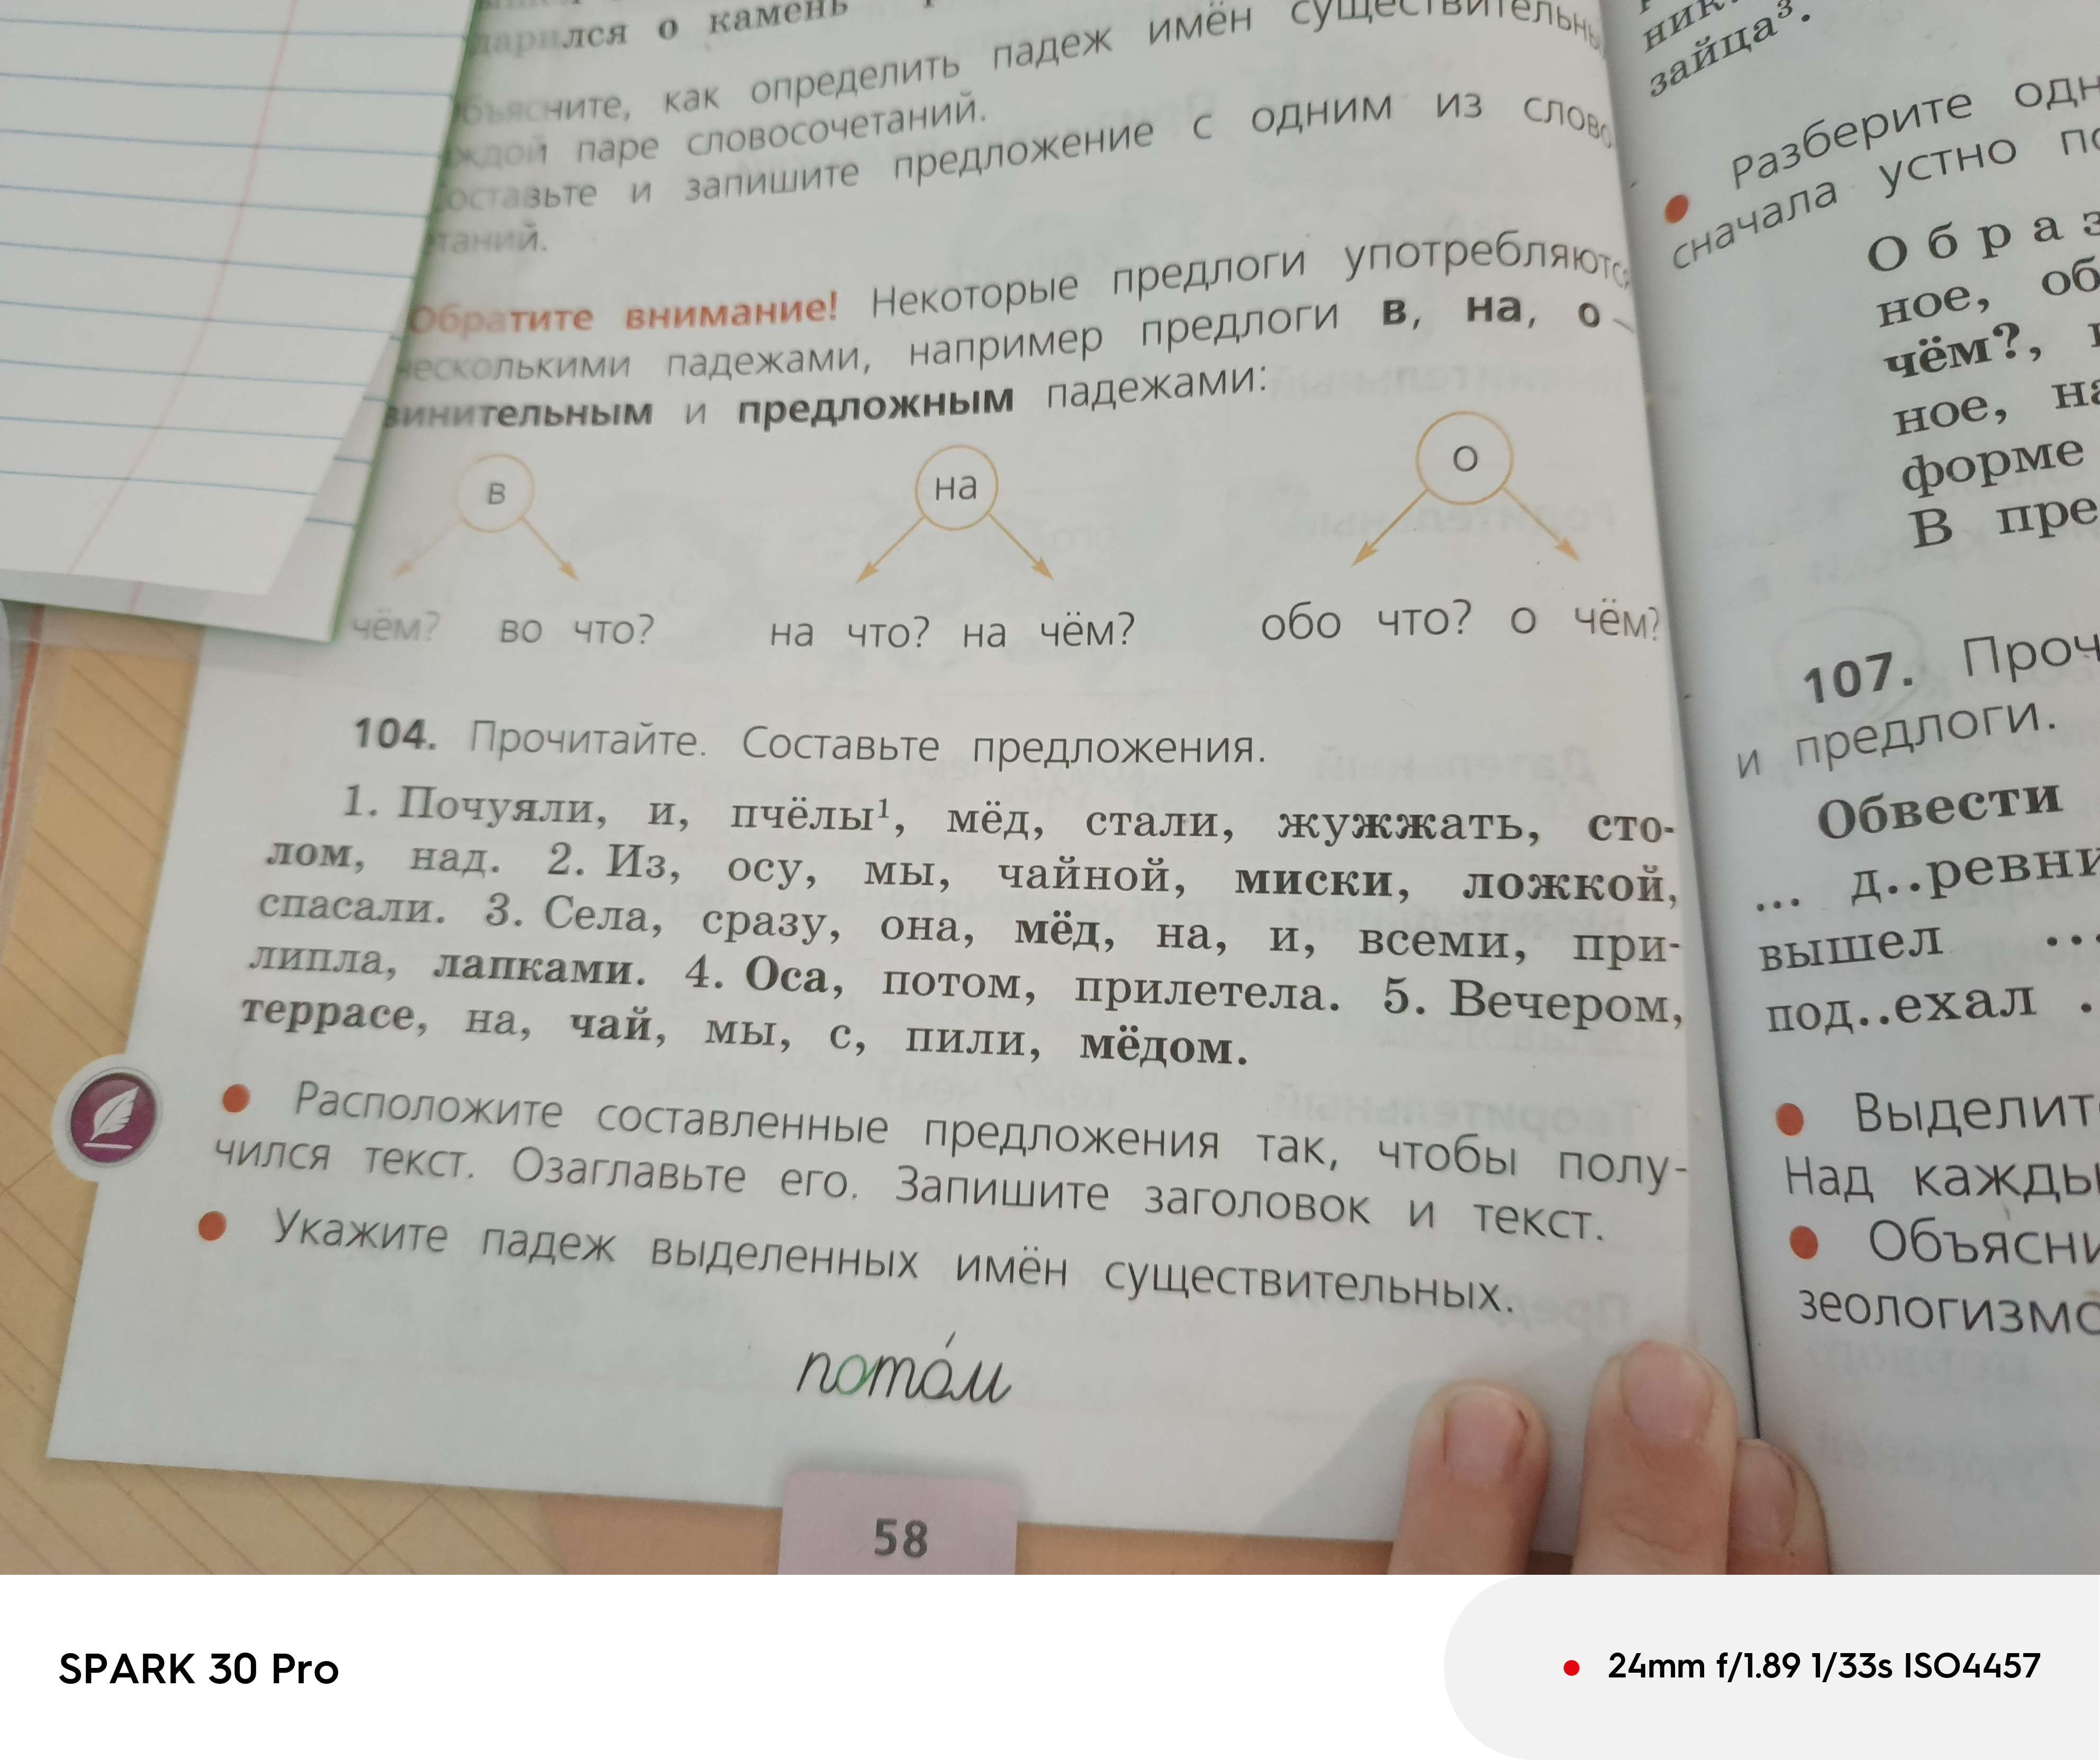 о камень
как определить падеж имён
паре словосочетаний.
и запишите предложение с одним из
Обратите внимание! Некоторые предлоги
несколькими падежами, например предлоги в, на, о
винительным и предложным падежами:
в на о
чём? во что? на что? на чём? обо что? о чём?
104. Прочитайте. Составьте предложения.
1. Почуяли, и, пчёлы¹, мёд, стали, жужжать, сто-
лом, над. 2. Из, осу, мы, чайной, миски, ложкой,
спасали. 3. Села, сразу, она, мёд, на, и, всеми, при-
липла, лапками. 4. Оса, потом, прилетела. 5. Вечером,
террасе, на, чай, мы, с, пили, мёдом.
Расположите составленные предложения так, чтобы полу-
чился текст. Озаглавьте его. Запишите заголовок и текст.
Укажите падеж выделенных имён существительных.
пото́м
58
зайца³.
Разберите
сначала устно
ное,
чём?,
ное,
форме
В
107.
и предлоги.
Обвести
...
вышел ...
под..ехал
Над
SPARK 30 Pro
24mm f/1.89 1/33s ISO4457